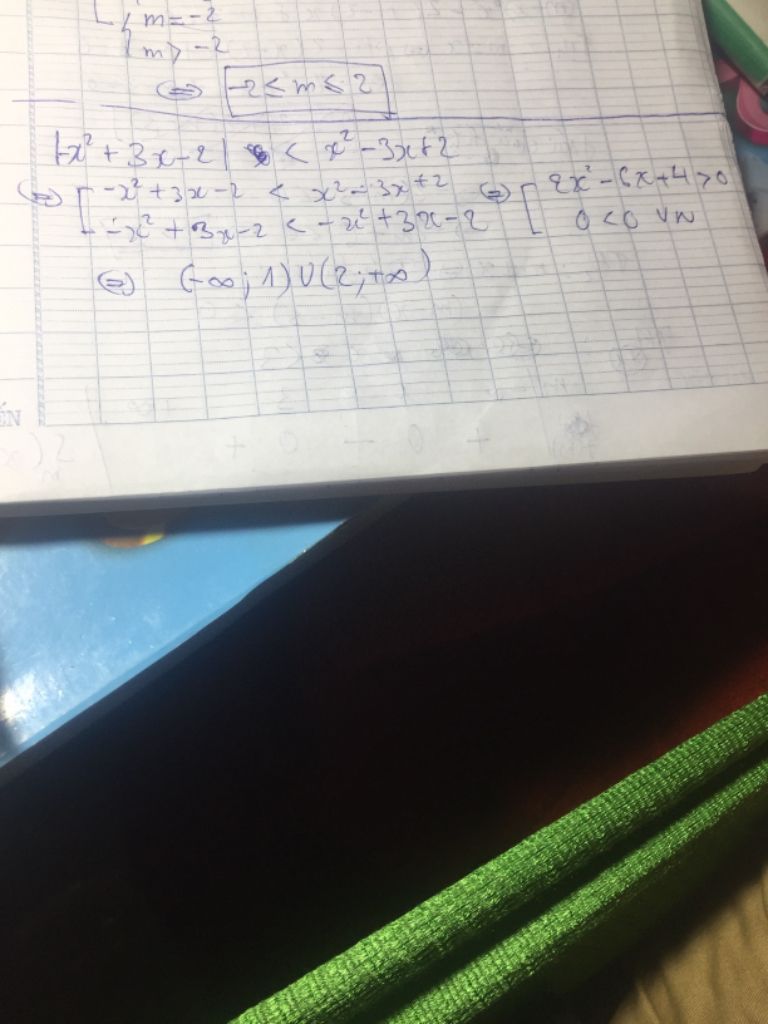 m = -2
m > -2
⇔ -2 ≤ m ≤ 2
|-x² + 3x - 2| < x² - 3x + 2
⇔ [ -x² + 3x - 2 < x² - 3x + 2 ⇔ [ 2x² - 6x + 4 > 0
-x² + 3x - 2 < -x² + 3x - 2 0 < 0 VN
⇔ (-∞; 1) ∪ (2; +∞)
ẾN